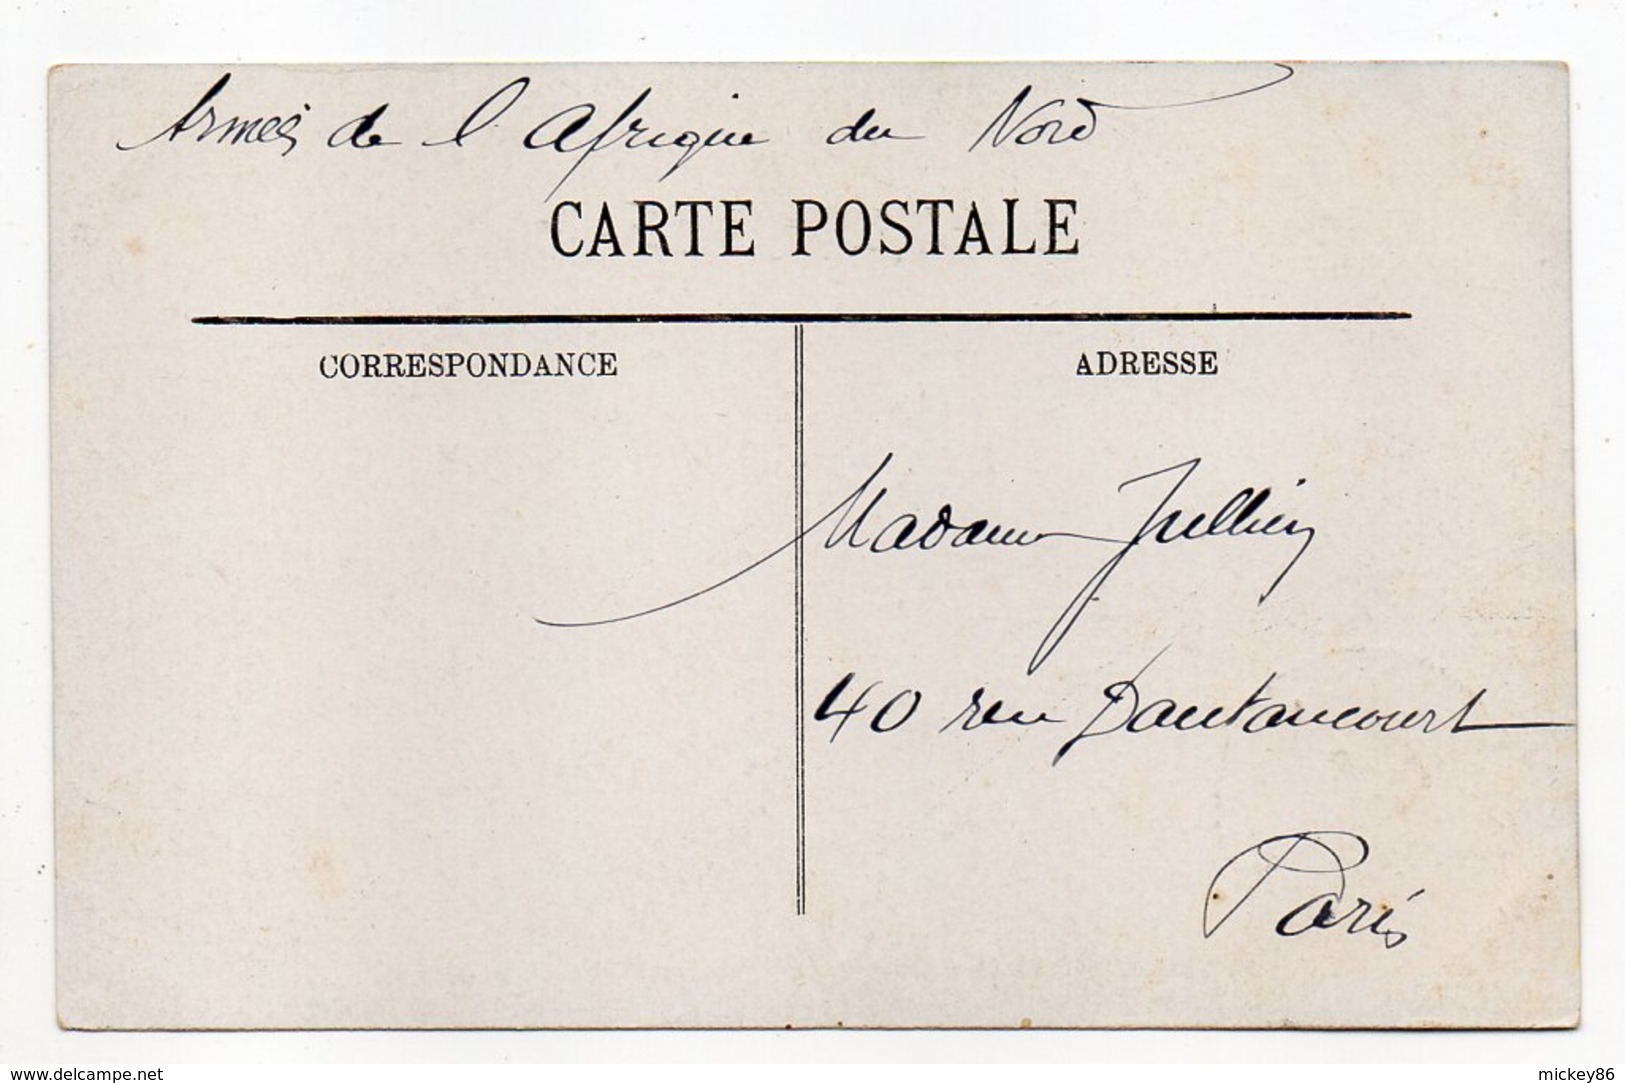 Armée de l'Afrique du Nord
CARTE POSTALE
CORRESPONDANCE
ADRESSE
Madame Jullien
40 rue Dautancourt
Paris
www.delcampe.net
mickey86